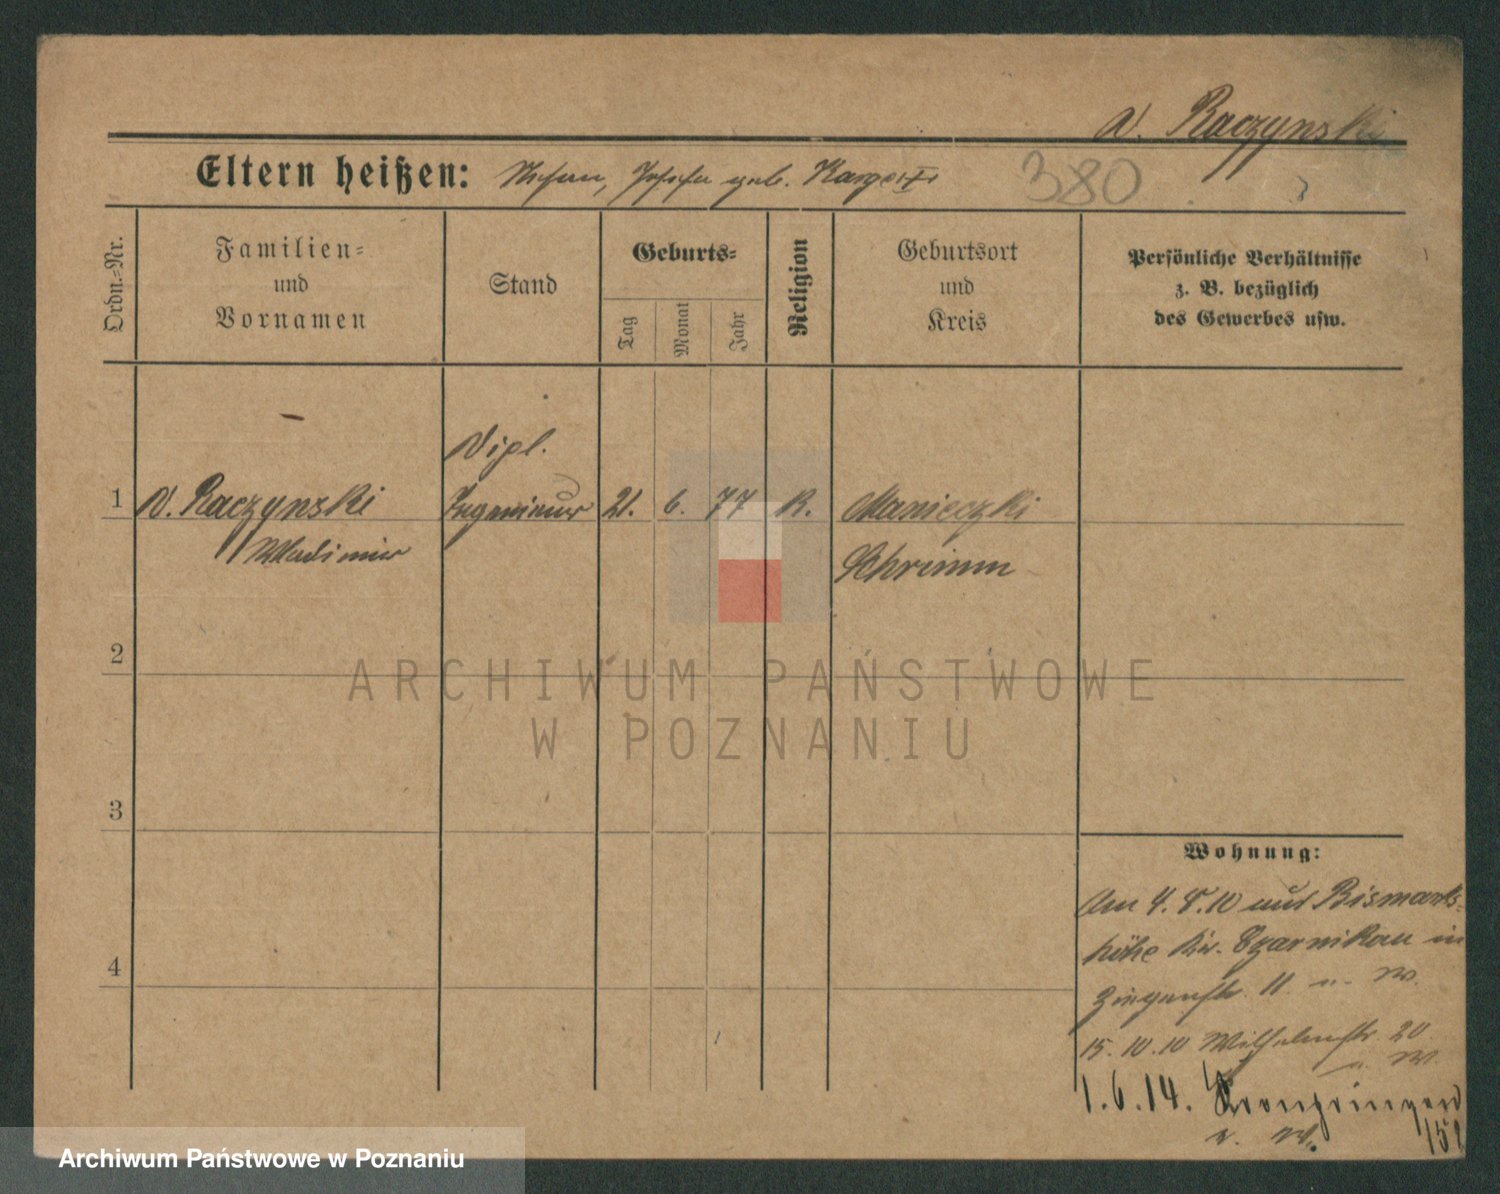 v. Raczynski
Eltern heißen: Stefan, Josefa geb.
380
Ordn.-Nr.
Familien-
und
Vornamen
Stand
Geburts-
Tag
Monat
Jahr
Religion
Geburtsort
und
Kreis
Persönliche Verhältnisse
z. B. bezüglich
des Gewerbes usw.
Dipl.
1 v. Raczynski Ingenieur 21. 6. 77 K. Manieczki
Wladimir Schrimm
2
3
4
Wohnung:
Am 4. 8. 10 aus Bismarks-
höhe Kr. Czarnikau in
11 n. W.
15. 10. 10 Wilhelmstr. 20
n. W.
1. 6. 14. Kronprinzen
n. W.
ARCHIWUM PAŃSTWOWE
W POZNANIU
Archiwum Państwowe w Poznaniu